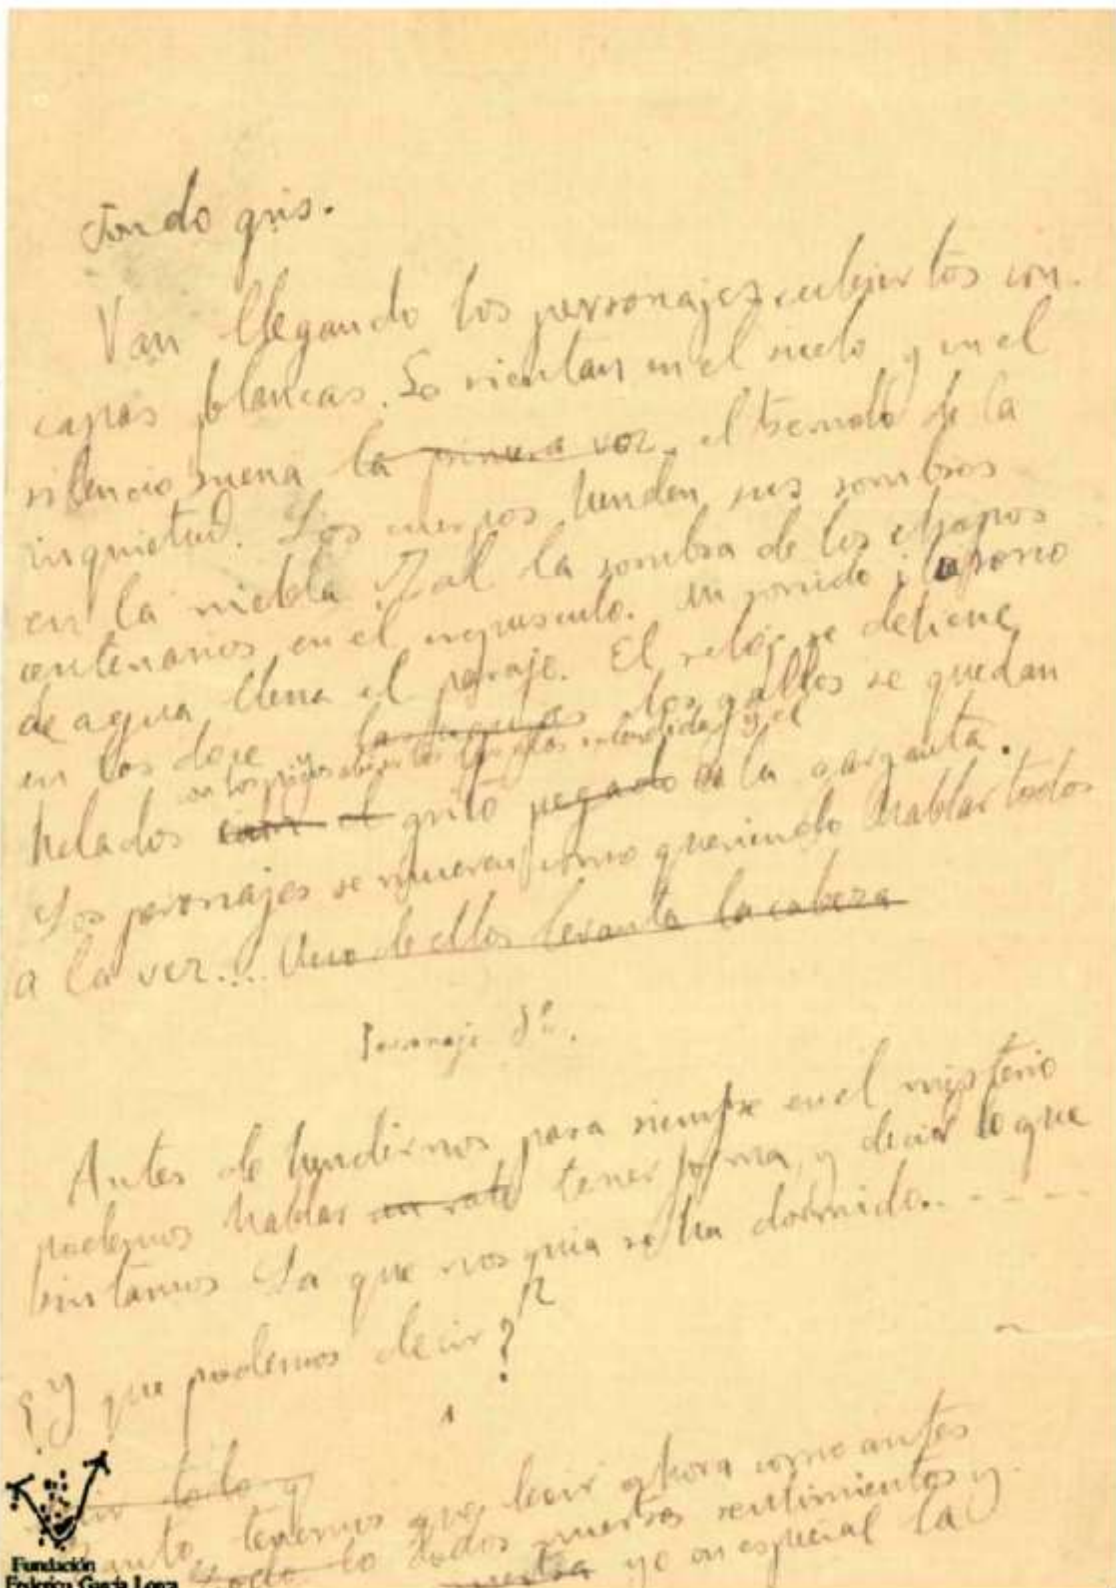 Fondo gris.
Van llegando los personajes cubiertos con
capas blancas. Se sientan en el suelo y en el
silencio suena la primera voz el tremolo de la
inquietud. Los cuerpos hunden sus sombras
en la niebla Igual la sombra de los chopos
centenarios en el crepusculo. Un sonido
de agua llena el paraje. El reloj se detiene
en las doce y los gallos se quedan
con los picos abiertos las alas extendidas y el
helados con el grito pegado en la garganta.
Los personajes se mueven como queriendo hablar todos
a la vez.... Uno de ellos levanta la cabeza
Personaje 1º.
Antes de hundirnos para siempre en el misterio
podemos hablar un rato tener forma y decir lo que
sintamos La que nos guia se ha dormido..-----
2
¿Y que podemos decir?
1
todo y
tenemos que decir ahora como antes
todo lo todos nuestros sentimientos y
nuestra yo en especial la
Fundación
Federico García Lorca